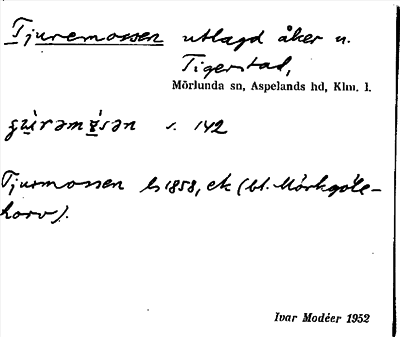 Tjuremossen utlagd åker u.
Tigerstad,
Mörlunda sn, Aspelands hd, Klm. l.
s. 142
Tjurmossen ls 1858, ek (bl. Mörkgöle-
horv).
Ivar Modéer 1952